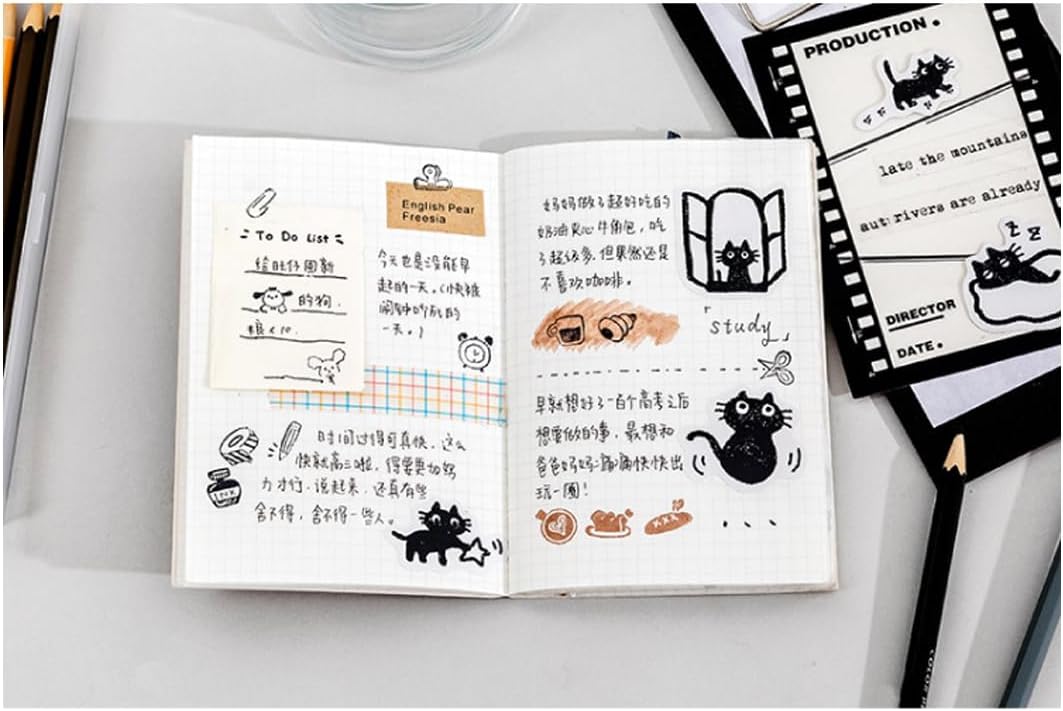 To Do List
给旺仔囤新
的狗
粮×10.
English Pear
Freesia
今天也是没能早
起的一天。（快被
闹钟吵死的
一天。）
时间过得可真快，这么
快就高三啦，得要更加努
力才行.说起来，还真有些
舍不得，舍不得一些人。
INK
妈妈做了超好吃的
奶油夹心牛角包，吃
了超级多，但果然还是
不喜欢咖啡。
「study」
早就想好了一百个高考之后
想要做的事，最想和
爸爸妈妈痛痛快快出
玩一圈！
XXX
PRODUCTION.
late the mountains
rivers are already
z z
DIRECTOR
DATE.